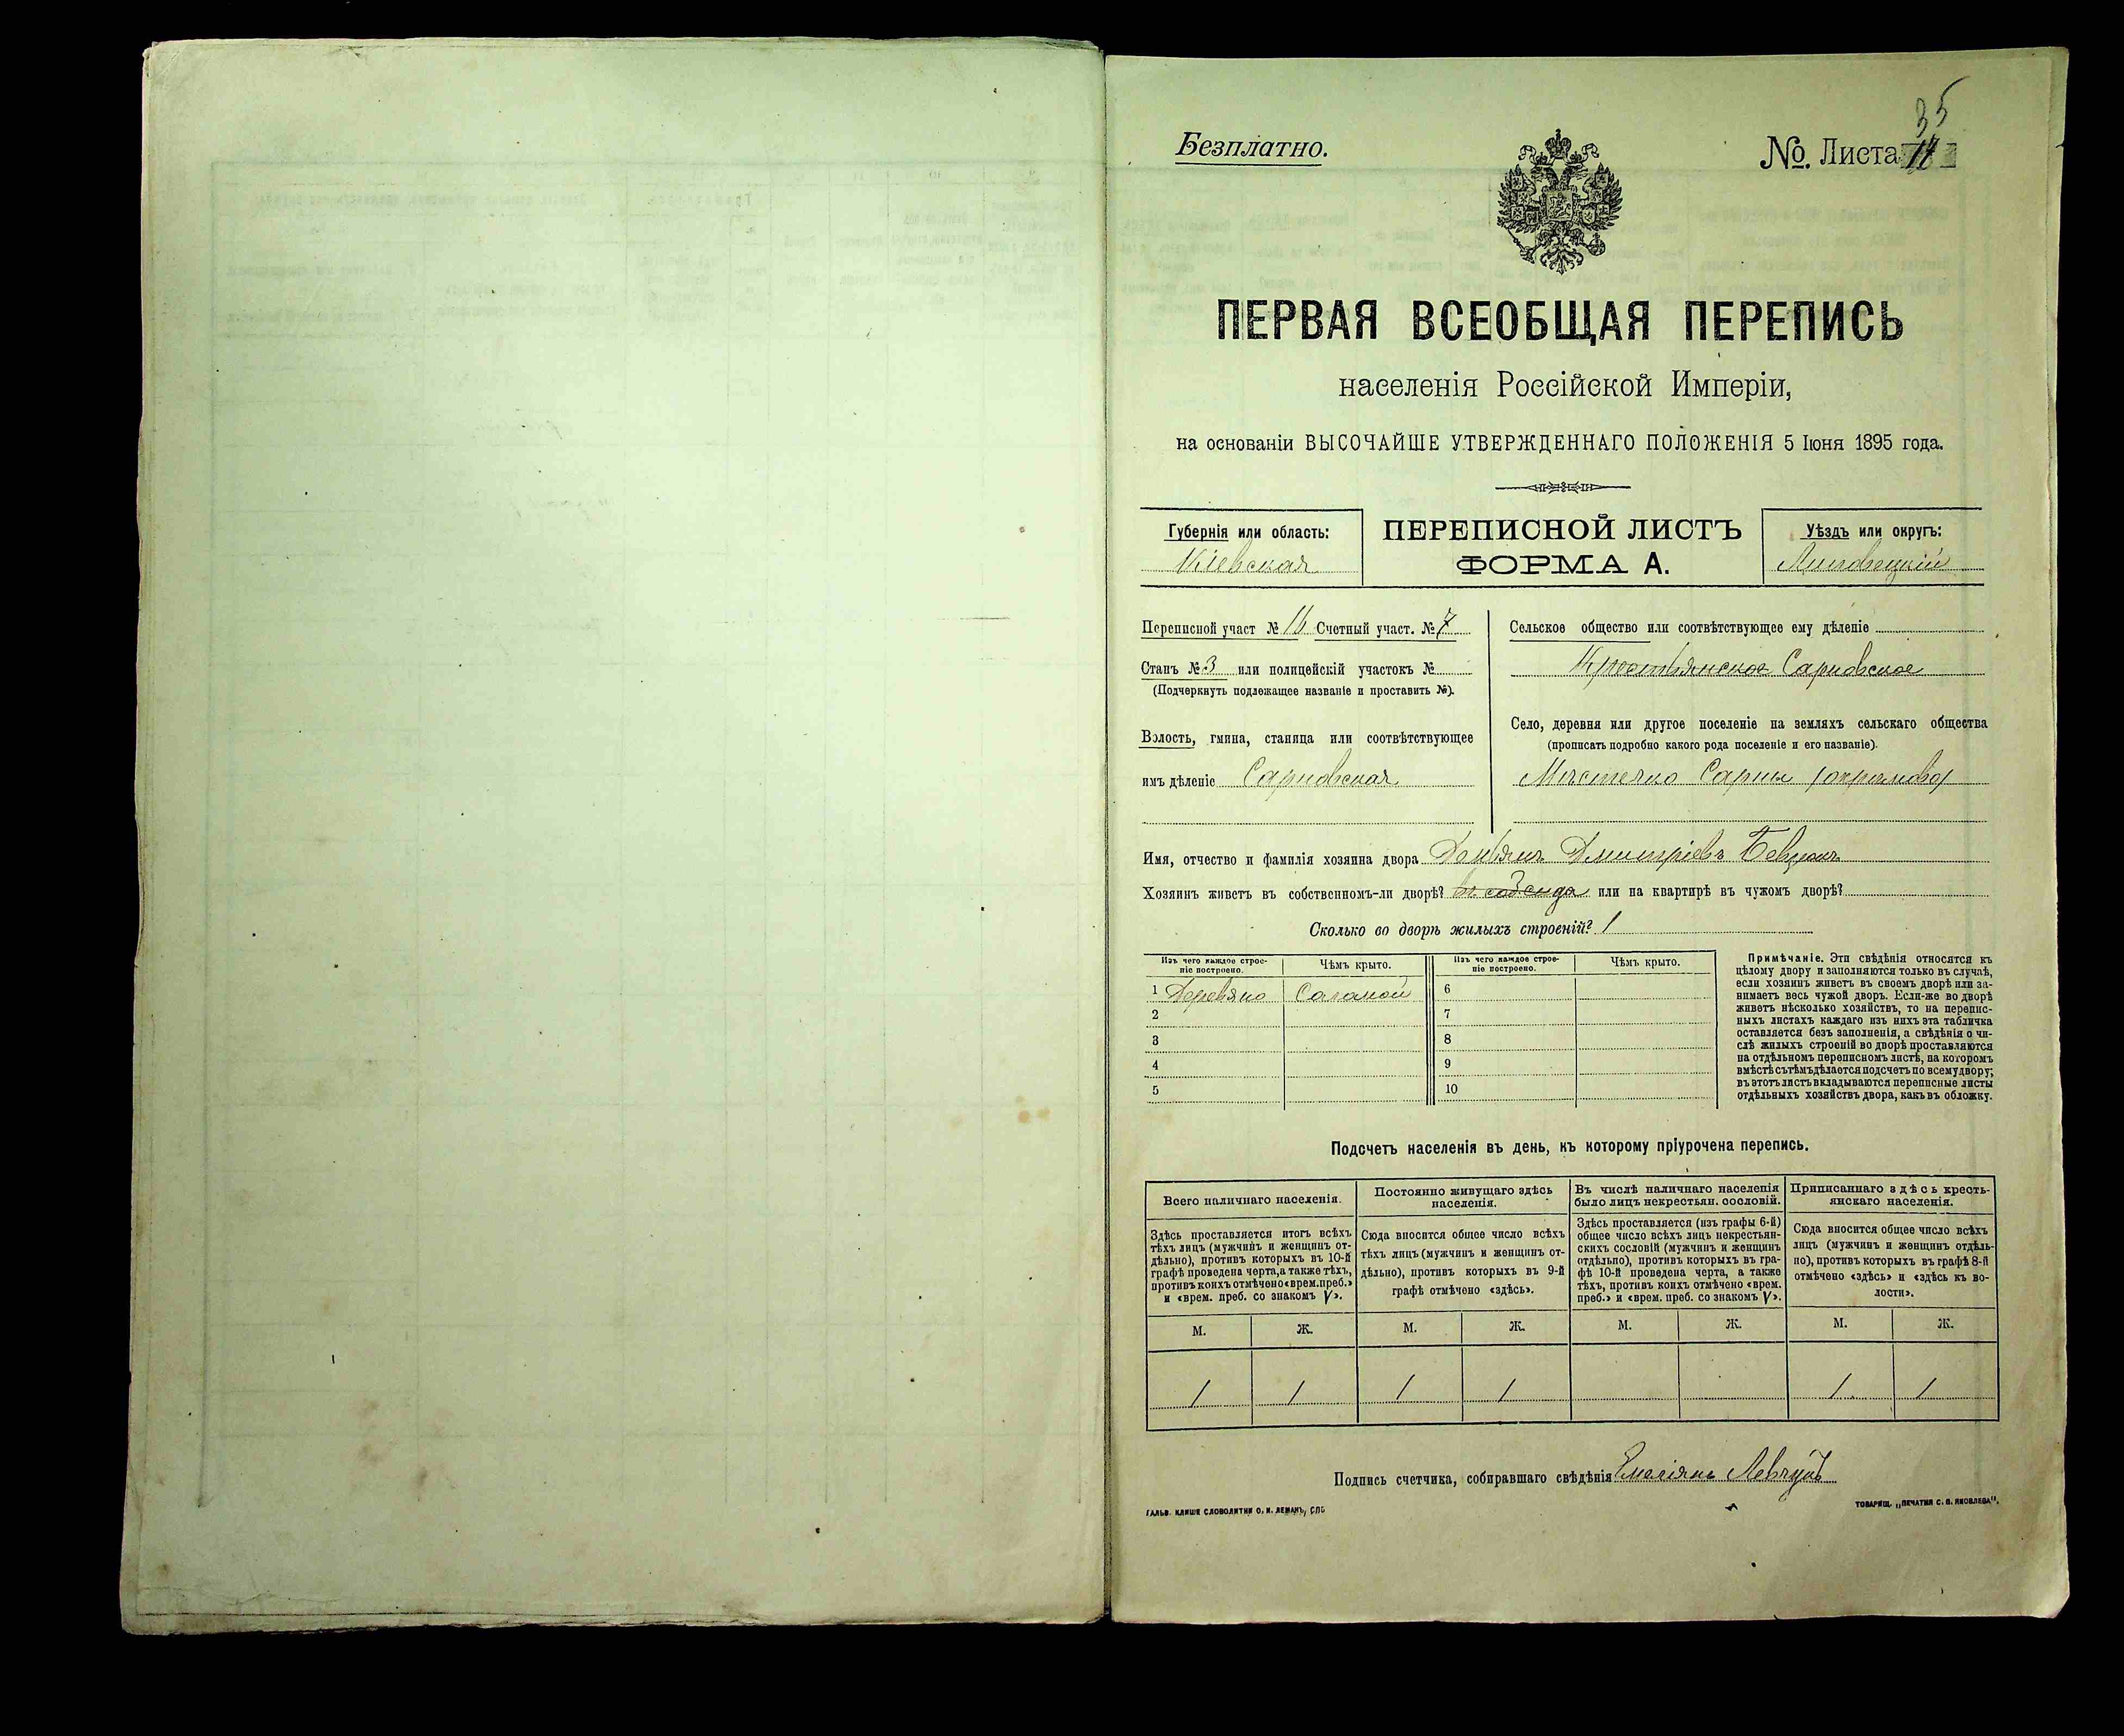 35
Безплатно.
№. Листа
ПЕРВАЯ ВСЕОБЩАЯ ПЕРЕПИСЬ
населенія Россійской Имперіи,
на основаніи ВЫСОЧАЙШЕ УТВЕРЖДЕННАГО ПОЛОЖЕНІЯ 5 Іюня 1895 года.
Губернія или область:
Кіевская
ПЕРЕПИСНОЙ ЛИСТЪ
ФОРМА А.
Уѣздъ или округъ:
Липовецкій
Переписной участ № 16 Счетный участ. № 7
Станъ № 3 или полицейскій участокъ №
(Подчеркнуть подлежащее названіе и проставить №).
Волость, гмина, станица или соотвѣтствующее
имъ дѣленіе Сарновская
Сельское общество или соотвѣтствующее ему дѣленіе
Крестьянское Сарновское
Село, деревня или другое поселеніе на земляхъ сельскаго общества
(прописать подробно какого рода поселеніе и его названіе).
Мѣстечко Сарны
Имя, отчество и фамилія хозяина двора Демьянъ Дмитріевъ
Хозяинъ живетъ въ собственномъ-ли дворѣ? или на квартирѣ въ чужомъ дворѣ?
Сколько во дворѣ жилыхъ строеній? 1
Изъ чего каждое строе-
ніе построено.
Чѣмъ крыто.
Изъ чего каждое строе-
ніе построено.
Чѣмъ крыто.
1 Деревяно Саламой 6
2 7
3 8
4 9
5 10
Примѣчаніе. Эти свѣдѣнія относятся къ
цѣлому двору и заполняются только въ случаѣ,
если хозяинъ живетъ въ своемъ дворѣ или за-
нимаетъ весь чужой дворъ. Если-же во дворѣ
живетъ нѣсколько хозяйствъ, то на перепис-
ныхъ листахъ каждаго изъ нихъ эта табличка
оставляется безъ заполненія, а свѣдѣнія о чи-
слѣ жилыхъ строеній во дворѣ проставляются
на отдѣльномъ переписномъ листѣ, на которомъ
вмѣстѣ съ тѣмъ дѣлается подсчетъ по всему двору;
въ этотъ листъ вкладываются переписные листы
отдѣльныхъ хозяйствъ двора, какъ въ обложку.
Подсчетъ населенія въ день, къ которому пріурочена перепись.
Всего наличнаго населенія.
Здѣсь проставляется итогъ всѣхъ
тѣхъ лицъ (мужчинъ и женщинъ от-
дѣльно), противъ которыхъ въ 10-й
графѣ проведена черта, а также тѣхъ,
противъ коихъ отмѣчено «врем. преб.»
и «врем. преб. со знакомъ V».
Постоянно живущаго здѣсь
населенія.
Сюда вносится общее число всѣхъ
тѣхъ лицъ (мужчинъ и женщинъ от-
дѣльно), противъ которыхъ въ 9-й
графѣ отмѣчено «здѣсь».
Въ числѣ наличнаго населенія
было лицъ некрестьян. сословій.
Здѣсь проставляется (изъ графы 6-й)
общее число всѣхъ лицъ некрестьян-
скихъ сословій (мужчинъ и женщинъ
отдѣльно), противъ которыхъ въ гра-
фѣ 10-й проведена черта, а также
тѣхъ, противъ коихъ отмѣчено «врем.
преб.» и «врем. преб. со знакомъ V».
Приписаннаго здѣсь кресть-
янскаго населенія.
Сюда вносится общее число всѣхъ
лицъ (мужчинъ и женщинъ отдѣль-
но), противъ которыхъ въ графѣ 8-й
отмѣчено «здѣсь» и «здѣсь къ во-
лости».
М. Ж. М. Ж. М. Ж. М. Ж.
1 1 1 1 1 1
Подпись счетчика, собиравшаго свѣдѣнія Емеліянъ
ГАЛЬВ. КЛИШЕ СЛОВОЛИТНИ О. И. ЛЕМАНЪ, СПБ
ТОВАРИЩ. „ПЕЧАТНЯ С. П. ЯКОВЛЕВА".